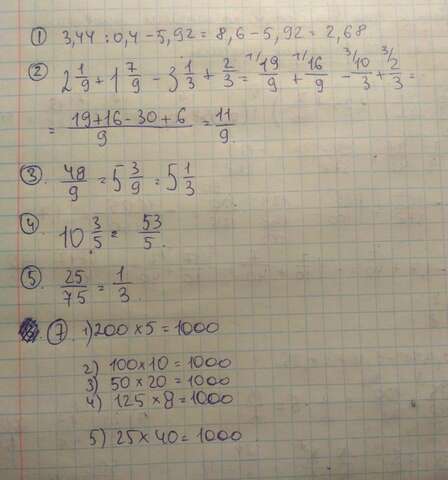 ① 3,44 : 0,4 - 5,92 = 8,6 - 5,92 = 2,68
② 2 1/9 + 1 7/9 - 3 1/3 + 2/3 = 1/ 19/9 + 1/ 16/9 - 3/ 10/3 + 3/ 2/3 =
= (19+16-30+6)/9 = 11/9.
③. 48/9 = 5 3/9 = 5 1/3
④. 10 3/5 = 53/5.
⑤. 25/75 = 1/3.
⑦. 1) 200 × 5 = 1000
2) 100×10 = 1000
3) 50 × 20 = 1000
4) 125 × 8 = 1000
5) 25 × 40 = 1000